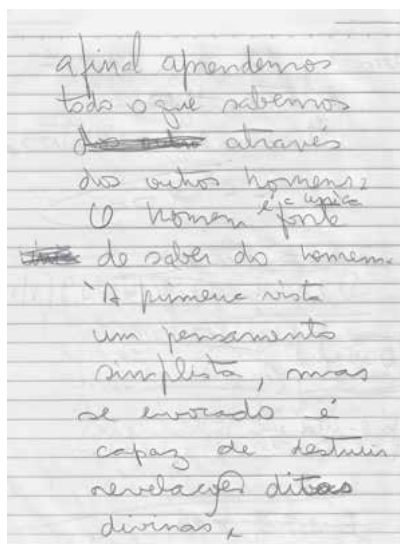 afinal aprendemos
todo o que sabemos
através
dos outros homens,
O homem é a única fonte
de saber do homem.
À primeira vista
um pensamento
simplista, mas
se evocado é
capaz de destruir
revelações ditas
divinas,